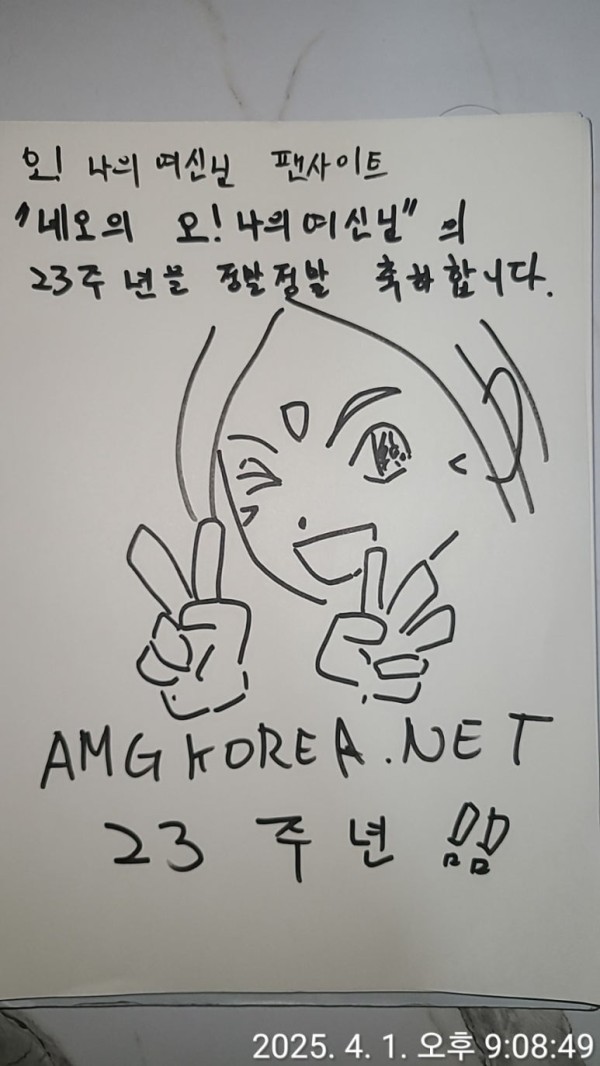 오! 나의 여신님 팬사이트
"네오의 오! 나의 여신님"의
23주년을 정말정말 축하합니다.
AMGKOREA.NET
23주년!!
2025. 4. 1. 오후 9:08:49